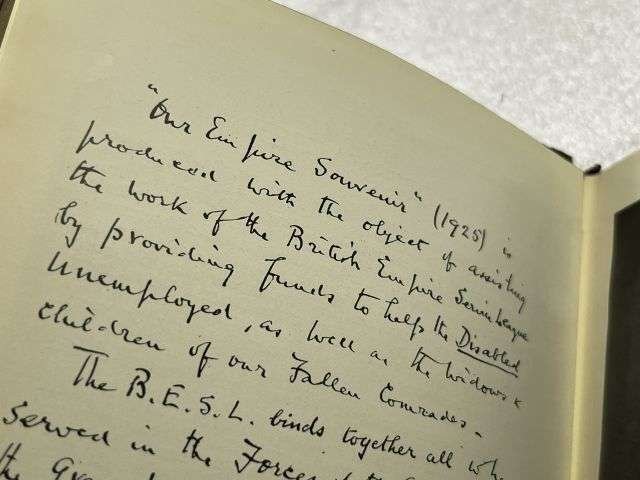 "Our Empire Souvenir" (1925) is
produced with the object of assisting
the work of the British Empire Service League
by providing funds to help the Disabled
Unemployed, as well as the widows &
children of our Fallen Comrades.
The B.E.S.L. binds together all who
served in the Forces
the Great